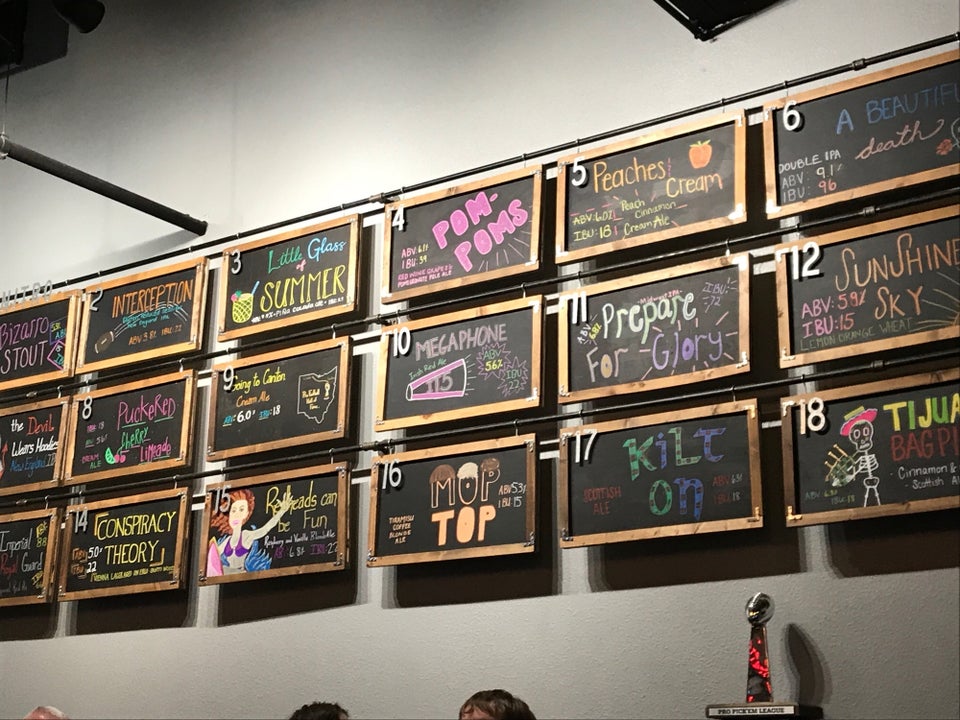 NITRO
Bizarro
STOUT
2
INTERCEPTION
3
Little Glass
of
SUMMER
4
POM-
POMS
5
Peaches
Cream
ABV: 6.0%
IBU: 18
Peach
Cinnamon
Cream Ale
6
A BEAUTIFU
death
DOUBLE IPA
ABV: 9.1%
IBU: 96
the Devil
Wears Hoodies
New England
8
PUCKERED
Cherry
Limeade
CREAM
ALE
9
Going to Canton
Cream Ale
ABV: 6.0% IBU: 18
10
MEGAPHONE
Irish Red Ale
ABV
5.6%
IBU
115
11
Prepare
For - Glory
IBU:
72
12
SUNSHINE
SKY
ABV: 5.9%
IBU: 15
LEMON ORANGE WHEAT
Imperial
Guard
14
CONSPIRACY
THEORY
15
Redheads can
be Fun
Raspberry and Vanilla
16
MOP
TOP
TIRAMISU
COFFEE
BLONDE
ALE
IBU: 15
17
KiLT
ON
SCOTTISH
ALE
IBU: 18
18
TIJUA
BAGPI
Cinnamon &
Scottish Al
PRO PICK'EM LEAGUE